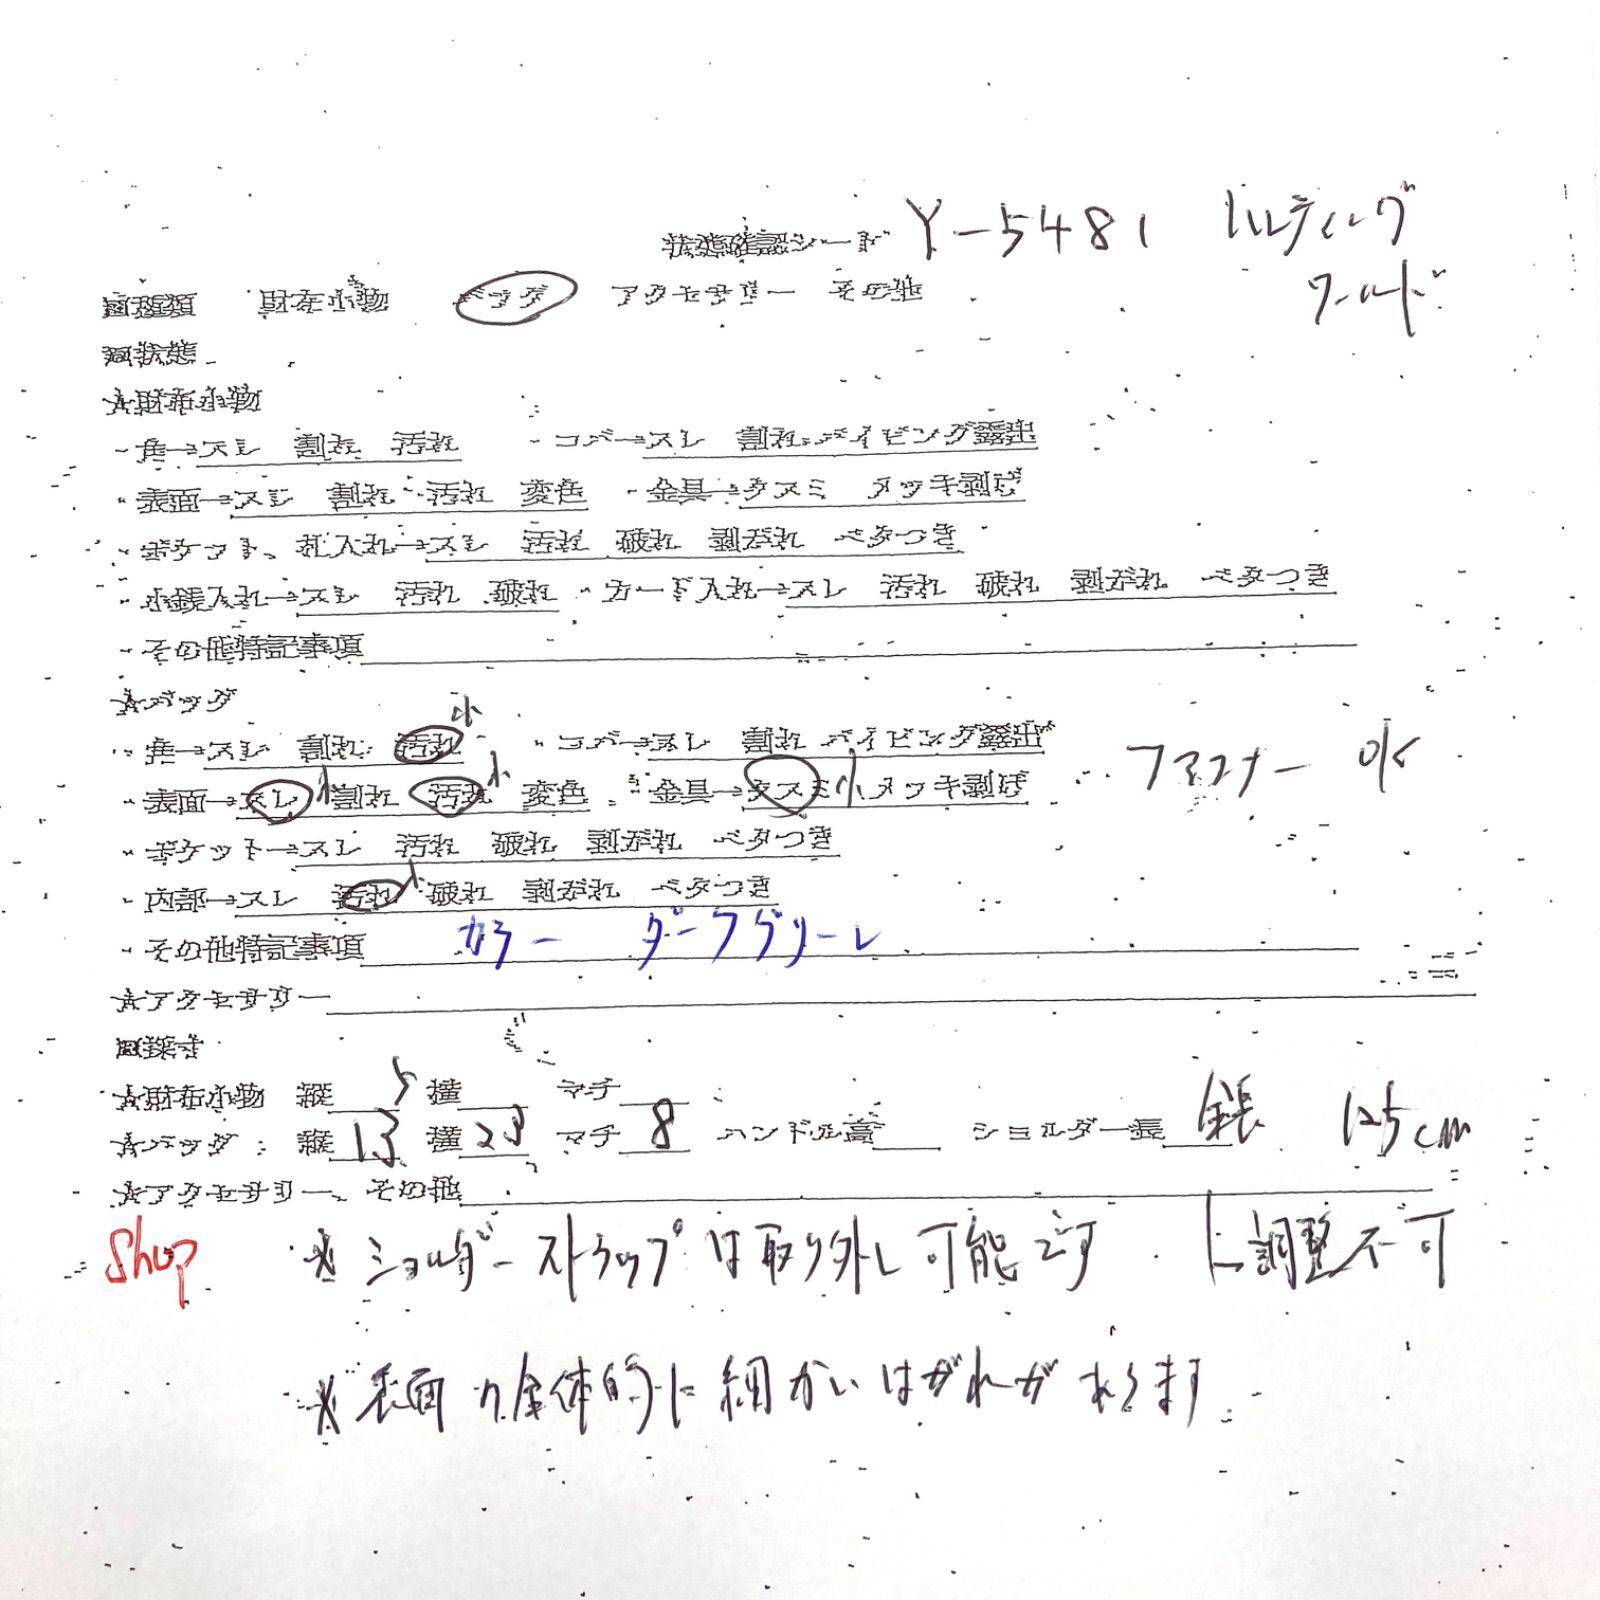 状態確認シート Y-5481 ハンティング
ワールド
□種類 財布小物 バッグ アクセサリー その他
□状態
☆財布小物
・角→スレ 割れ 汚れ ・コバ→スレ 割れ パイピング露出
・表面→スレ 割れ 汚れ 変色 ・金具→クスミ メッキ剥げ
・ポケット、札入れ→スレ 汚れ 破れ 剥がれ ベタつき
・小銭入れ→スレ 汚れ 破れ ・カード入れ→スレ 汚れ 破れ 剥がれ ベタつき
・その他特記事項
☆バッグ
・角→スレ 割れ 汚れ小 ・コバ→スレ 割れ パイピング露出
・表面→スレ小 割れ 汚れ小 変色 ・金具→クスミ小 メッキ剥げ ファスナー OK
・ポケット→スレ 汚れ 破れ 剥がれ ベタつき
・内部→スレ 汚れ小 破れ 剥がれ ベタつき
・その他特記事項 カラー ダークグリーン
☆アクセサリー
□採寸
☆財布小物 縦 横 マチ
☆バッグ:縦13.5 横23 マチ8 ハンドル高 ショルダー長 全長 125cm
☆アクセサリー、その他
Shop ※ショルダーストラップは取り外し可能です. 調整不可
※表面が全体的に細かいはがれがあります.